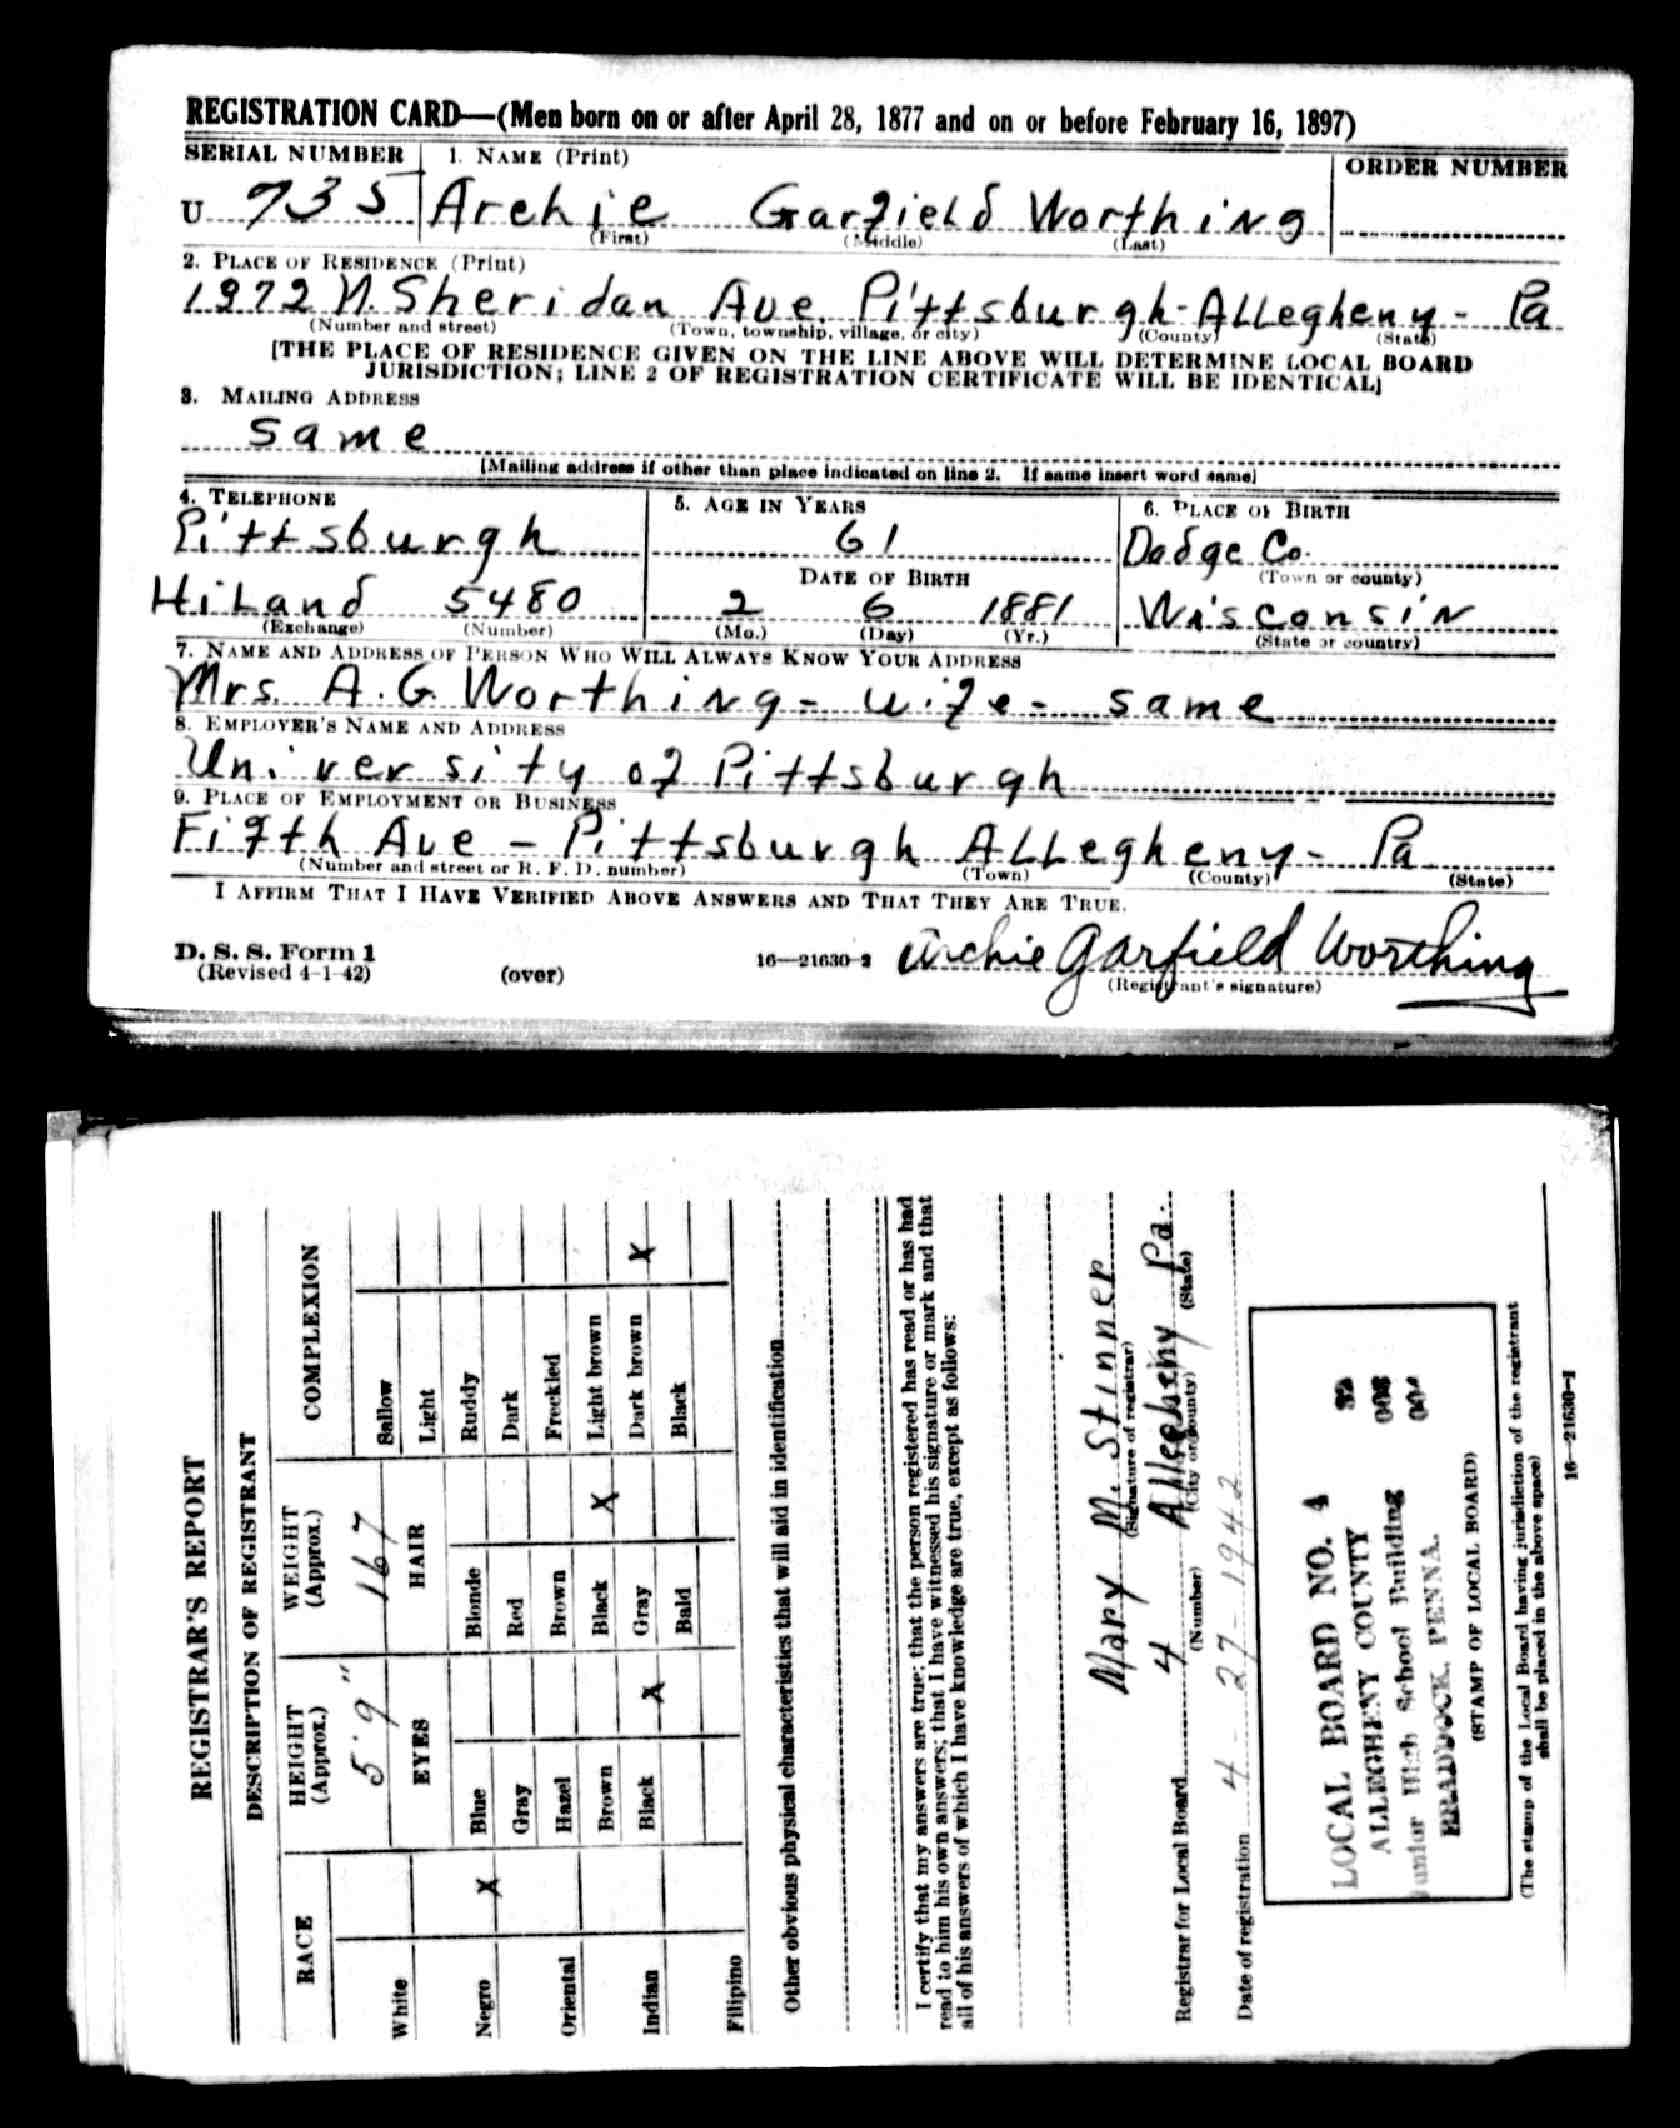 REGISTRATION CARD—(Men born on or after April 28, 1877 and on or before February 16, 1897)
SERIAL NUMBER 1. NAME (Print) ORDER NUMBER
U 735 Archie Garfield Worthing
(First) (Middle) (Last)
2. PLACE OF RESIDENCE (Print)
N. Sheridan Ave. Pittsburgh - Allegheny - Pa
(Number and street) (Town, township, village, or city) (County) (State)
[THE PLACE OF RESIDENCE GIVEN ON THE LINE ABOVE WILL DETERMINE LOCAL BOARD
JURISDICTION; LINE 2 OF REGISTRATION CERTIFICATE WILL BE IDENTICAL]
3. MAILING ADDRESS
Same
[Mailing address if other than place indicated on line 2. If same insert word same]
4. TELEPHONE 5. AGE IN YEARS 6. PLACE OF BIRTH
Pittsburgh 61 Dodge Co.
DATE OF BIRTH (Town or county)
HiLand 5480 2 6 1881 Wisconsin
(Exchange) (Number) (Mo.) (Day) (Yr.) (State or country)
7. NAME AND ADDRESS OF PERSON WHO WILL ALWAYS KNOW YOUR ADDRESS
Mrs. A. G. Worthing - wife - same
8. EMPLOYER'S NAME AND ADDRESS
University of Pittsburgh
9. PLACE OF EMPLOYMENT OR BUSINESS
Fifth Ave - Pittsburgh Allegheny - Pa
(Number and street or R. F. D. number) (Town) (County) (State)
I AFFIRM THAT I HAVE VERIFIED ABOVE ANSWERS AND THAT THEY ARE TRUE.
D. S. S. Form 1
(Revised 4-1-42) (over) 16—21630-2 Archie Garfield Worthing
(Registrant's signature)
REGISTRAR'S REPORT
DESCRIPTION OF REGISTRANT
RACE HEIGHT (Approx.) WEIGHT (Approx.) COMPLEXION
5' 9" 167
EYES HAIR
White Blue Blonde Sallow
Light
Negro X Gray Red Ruddy
Dark
Oriental Hazel Brown Freckled
Brown Black X Light brown
Indian Black X Gray Dark brown X
Bald Black
Filipino
Other obvious physical characteristics that will aid in identification
I certify that my answers are true; that the person registered has read or has had
read to him his own answers; that I have witnessed his signature or mark and that
all of his answers of which I have knowledge are true, except as follows:
Mary M. Stinner
(Signature of registrar)
Registrar for Local Board 4 Allegheny Pa.
(Number) (City or county) (State)
Date of registration 4 - 27 - 1942
LOCAL BOARD NO. 4 32
ALLEGHENY COUNTY 003
Junior High School Building 004
BRADDOCK, PENNA.
(STAMP OF LOCAL BOARD)
(The stamp of the Local Board having jurisdiction of the registrant
shall be placed in the above space)
16—21630-1